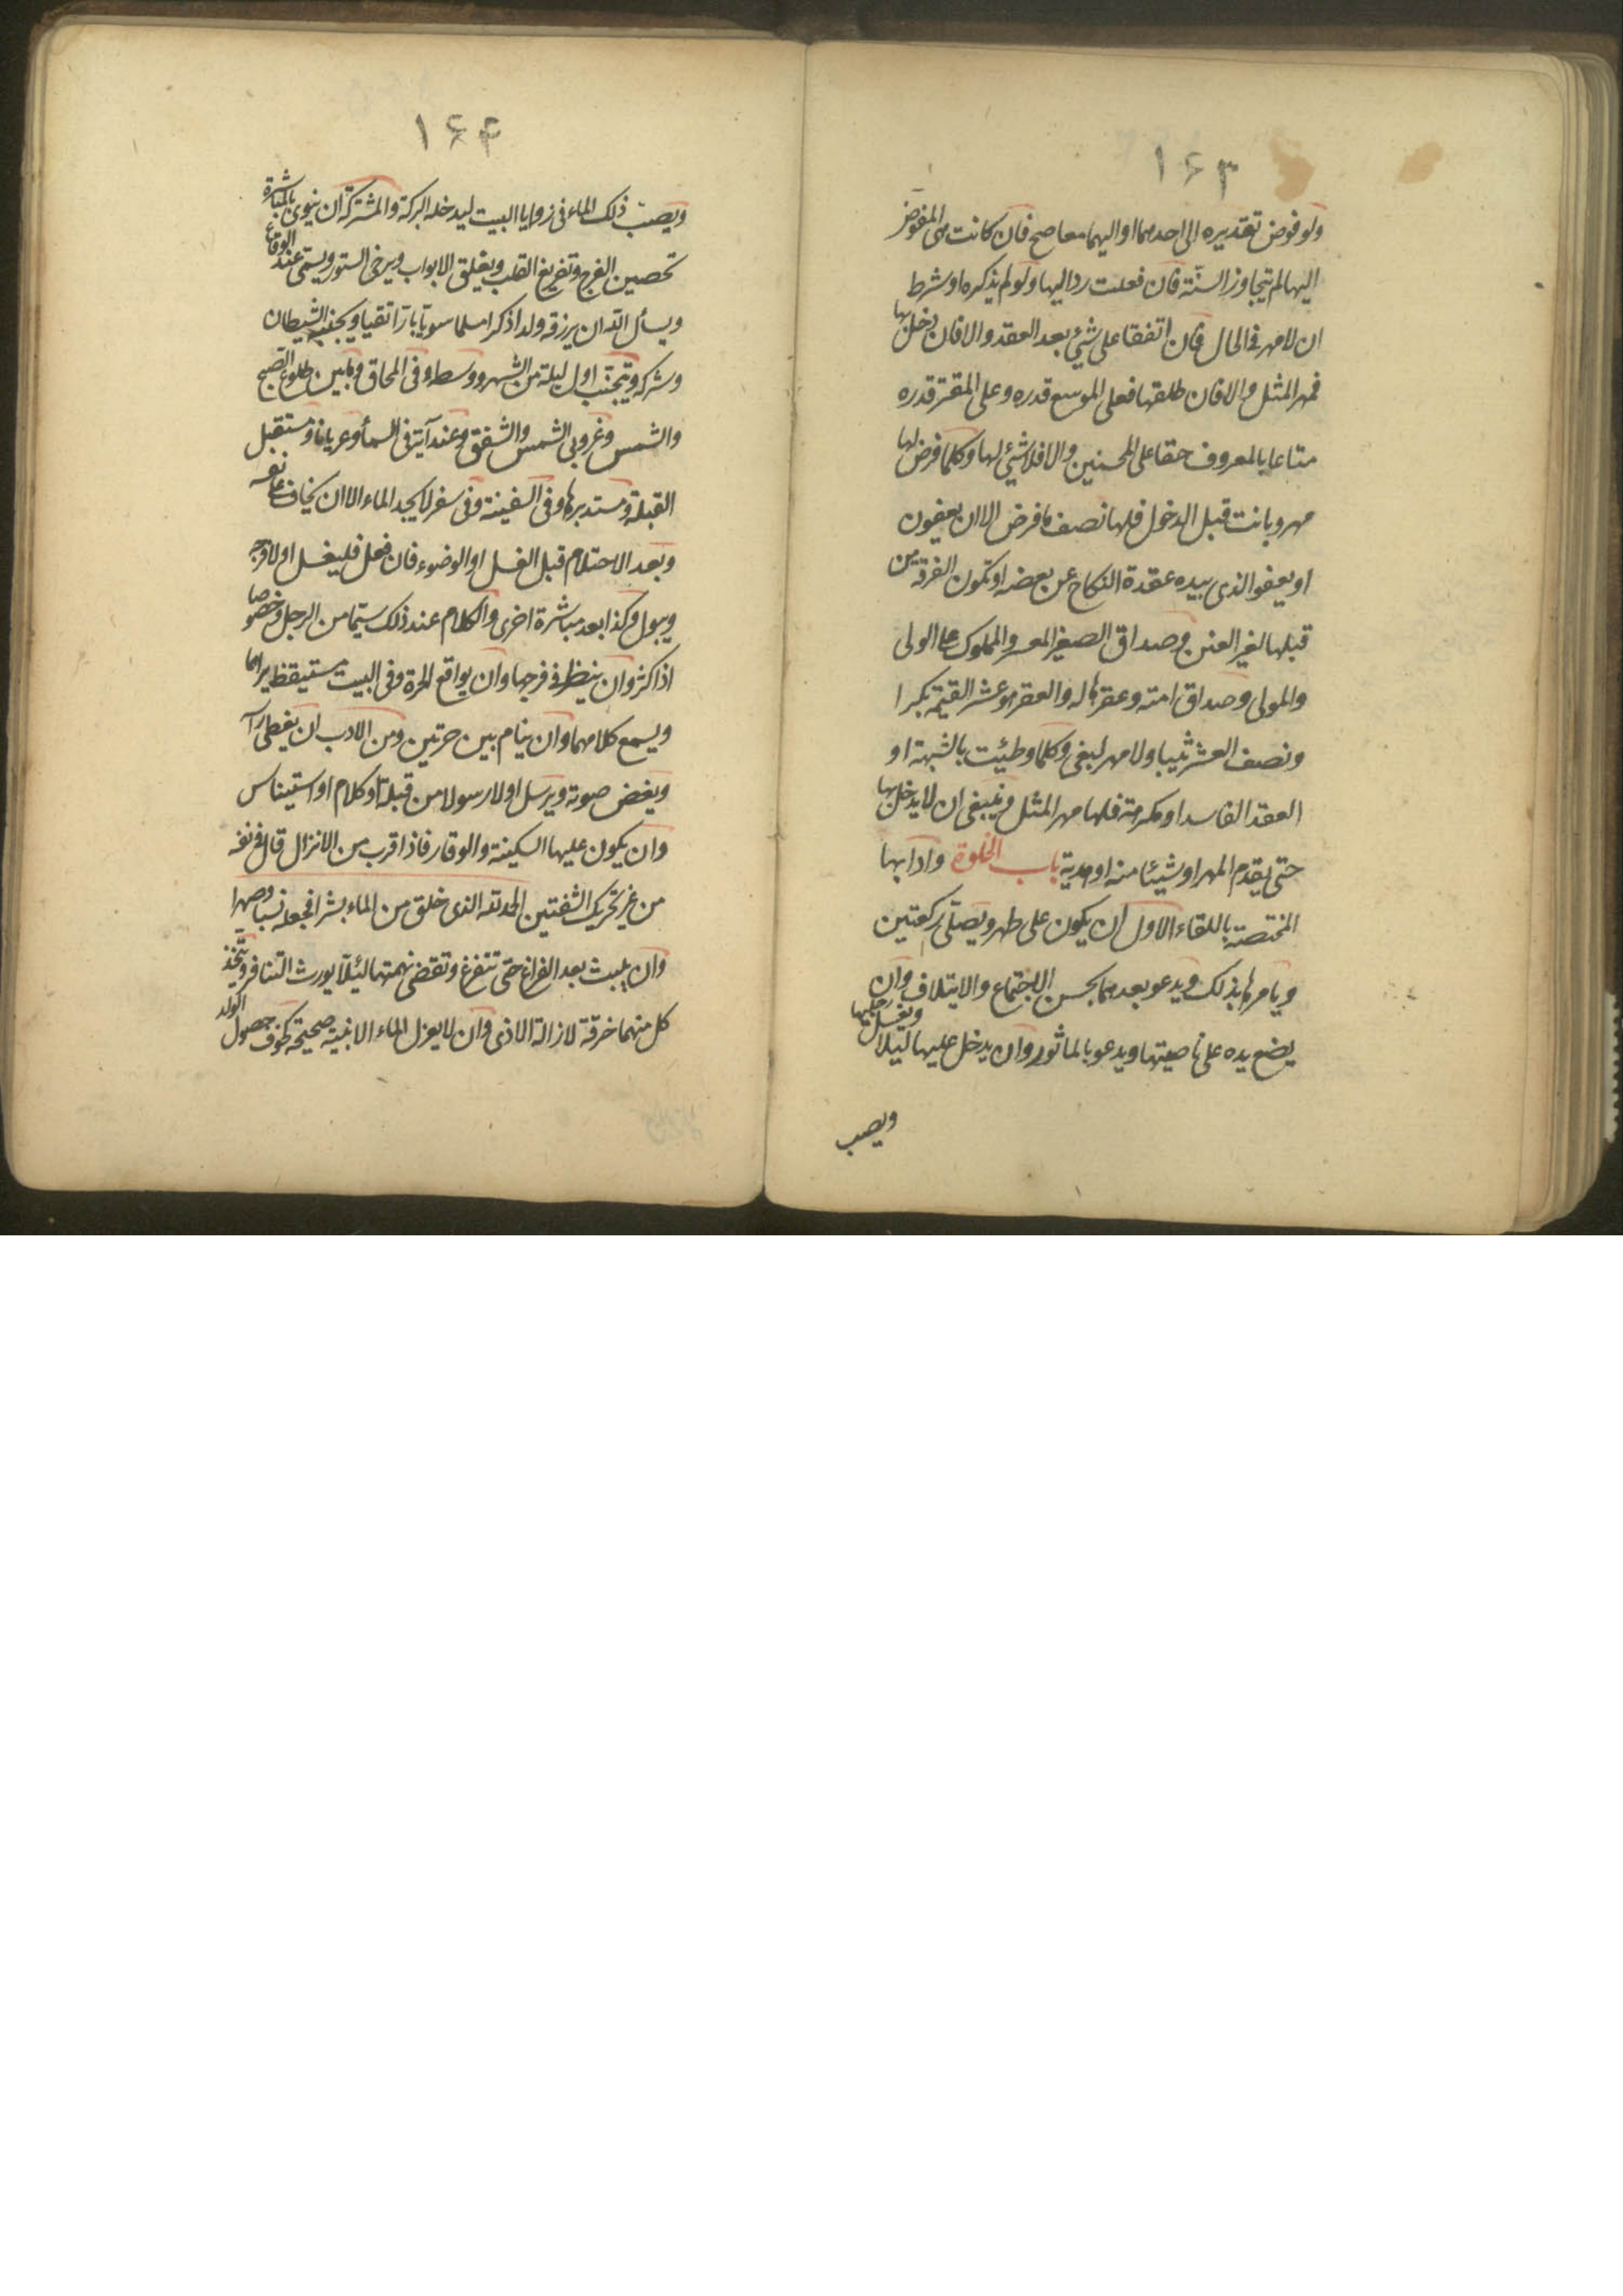 ۱۶۳
ولو فوض تقديره الى احدهما او اليهما معا صح فان كانت هى المفوض
اليها لم يتجاوز السنّة فان فعلت رد اليها ولو لم يذكره او شرط
ان لا مهر فى الحال فان اتفقا على شئ بعد العقد والا فان دخل بها
فمهر المثل والا فان طلقها فعلى الموسع قدره وعلى المقتر قدره
متاعا بالمعروف حقا على المحسنين والا فلا شئ لها وكلما فرض لها
مهر وبانت قبل الدخول فلها نصف ما فرض الا ان يعفون
او يعفو الذى بيده عقدة النكاح عن بعضه او تكون الفرقة من
قبلها لغير العنن وصداق الصغير المعسر والمملوك على الولى
والمولى وصداق امته وعقرها له والعقر هو عشر القيمة بكرا
ونصف العشر ثيبا ولا مهر لبغى وكلما وطئت بالشبهة او
العقد الفاسد او مكرهة فلها مهر المثل وينبغى ان لا يدخل بها
حتى يقدم المهر او شيئا منه او هدية باب الخلوة وادابها
المختصة باللقاء الاول ان يكون على طهر ويصلّى ركعتين
ويامرها بذلك ويدعو بعدهما بحسن الاجتماع والايتلاف وان
يضع يده على ناصيتها ويدعو بالماثور وان يدخل عليها ليلا ويغسل رجليها
ويصب
۱۶۴
ويصبّ ذلك الماء فى زوايا البيت ليدخله البركة والمشتركة ان ينوى بالمباشرة
تحصين الفرج وتفريغ القلب ويغلق الابواب ويرخى الستور ويسمى عند الوقاع
ويسأل الله ان يرزقه ولدا ذكرا مسلما سويا بارّا تقيا ويجنبه الشيطان
وشركه ويتجنّب اول ليلة من الشهر ووسطه وفى المحاق وما بين طلوع الصبح
والشمس وغروبى الشمس والشفق وعند آية فى السمآ وعريانا ومستقبل
القبلة ومستدبرها وفى السفينة وفى سفر لا يجد الماء الا ان يخاف على نفسه
وبعد الاحتلام قبل الغسل او الوضوء فان فعل فليغسل اولا فرجه
ويبول وكذا بعد مباشرة اخرى والكلام عند ذلك سيّما من الرجل وخصوصا
اذا كثر وان ينظر فى فرجها وان يواقع الحرة وفى البيت مستيقظ يراهما
ويسمع كلامهما وان ينام بين حرتين ومن الادب ان يغطى راسه
ويغض صوته ويرسل اولا رسولا من قبلة او كلام او استيناس
وان يكون عليها السكينة والوقار فاذا قرب من الانزال قال فى نفسه
من غير تحريك الشفتين الحمد لله الذى خلق من الماء بشرا فجعله نسبا وصهرا
وان يلبث بعد الفراغ حتى تتفرغ وتقضى نهمتها لئلا يورث التنافر ويتخذ
كل منهما خرقة لازالة الاذى وان لا يعزل الماء الا بنية صحيحة كخوف حصول الولد